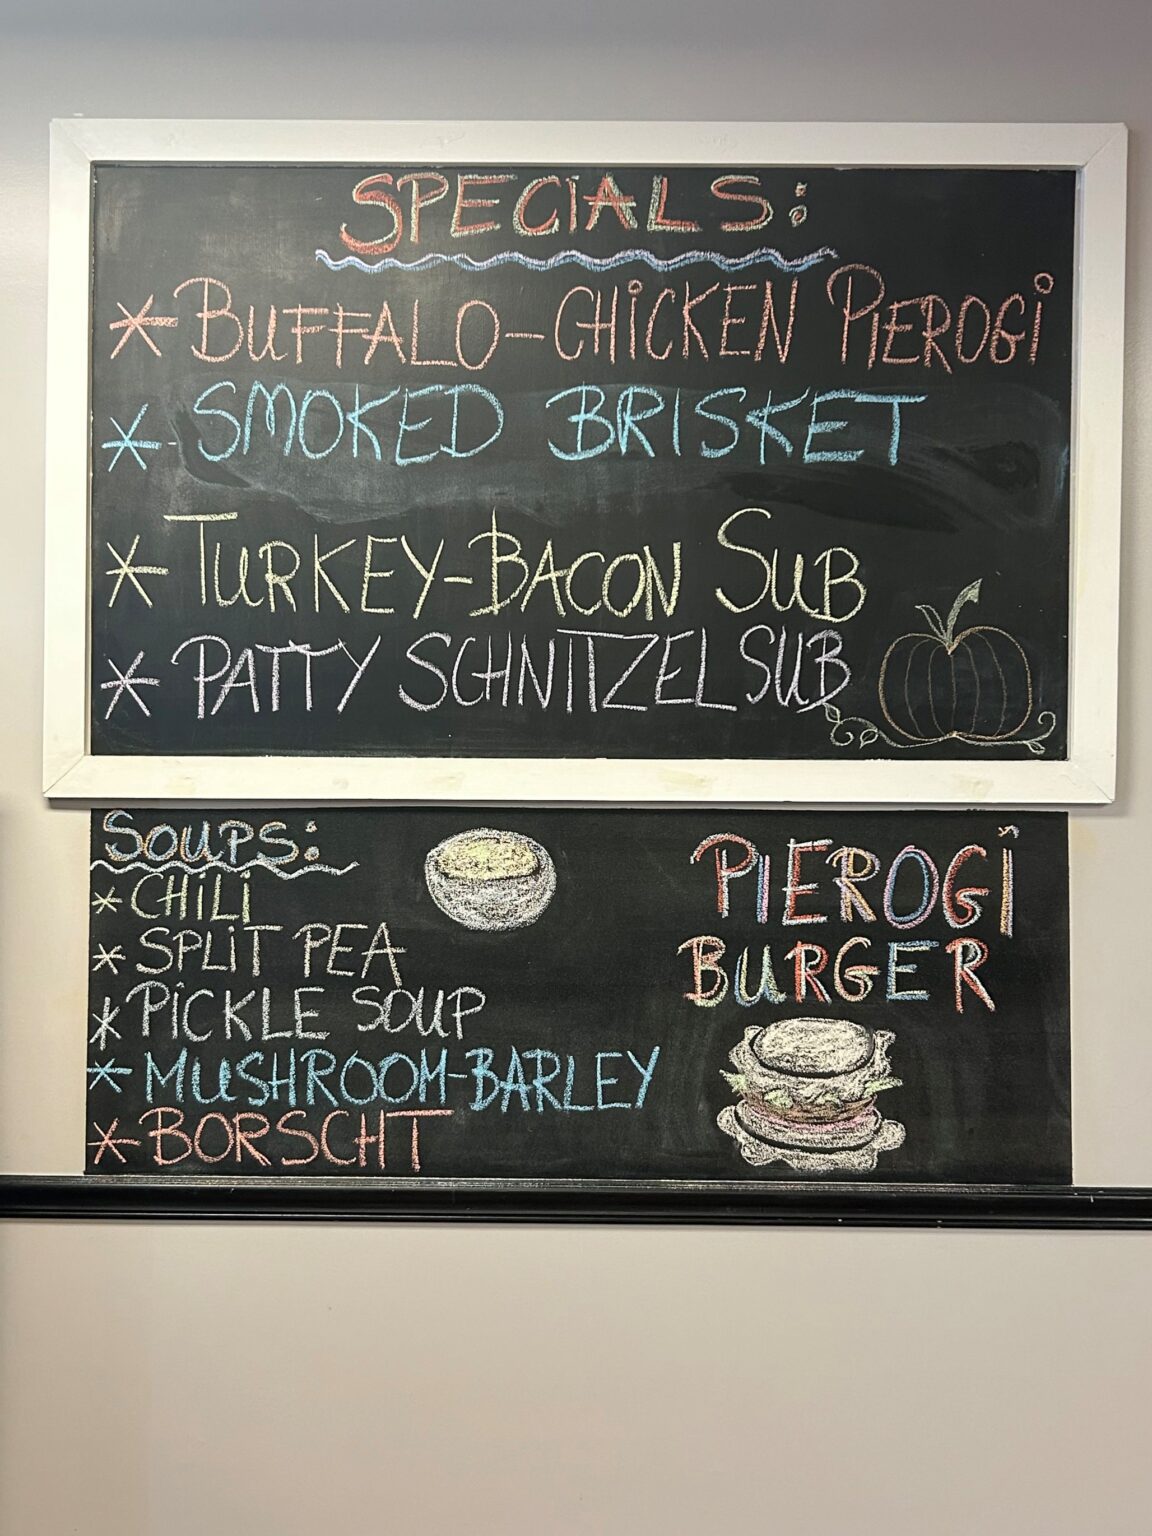 SPECIALS:
* BUFFALO-CHICKEN PIEROGI
* SMOKED BRISKET
* TURKEY-BACON SUB
* PATTY SCHNITZEL SUB
SOUPS:
* CHILI
* SPLIT PEA
* PICKLE SOUP
* MUSHROOM-BARLEY
* BORSCHT
PIEROGI
BURGER